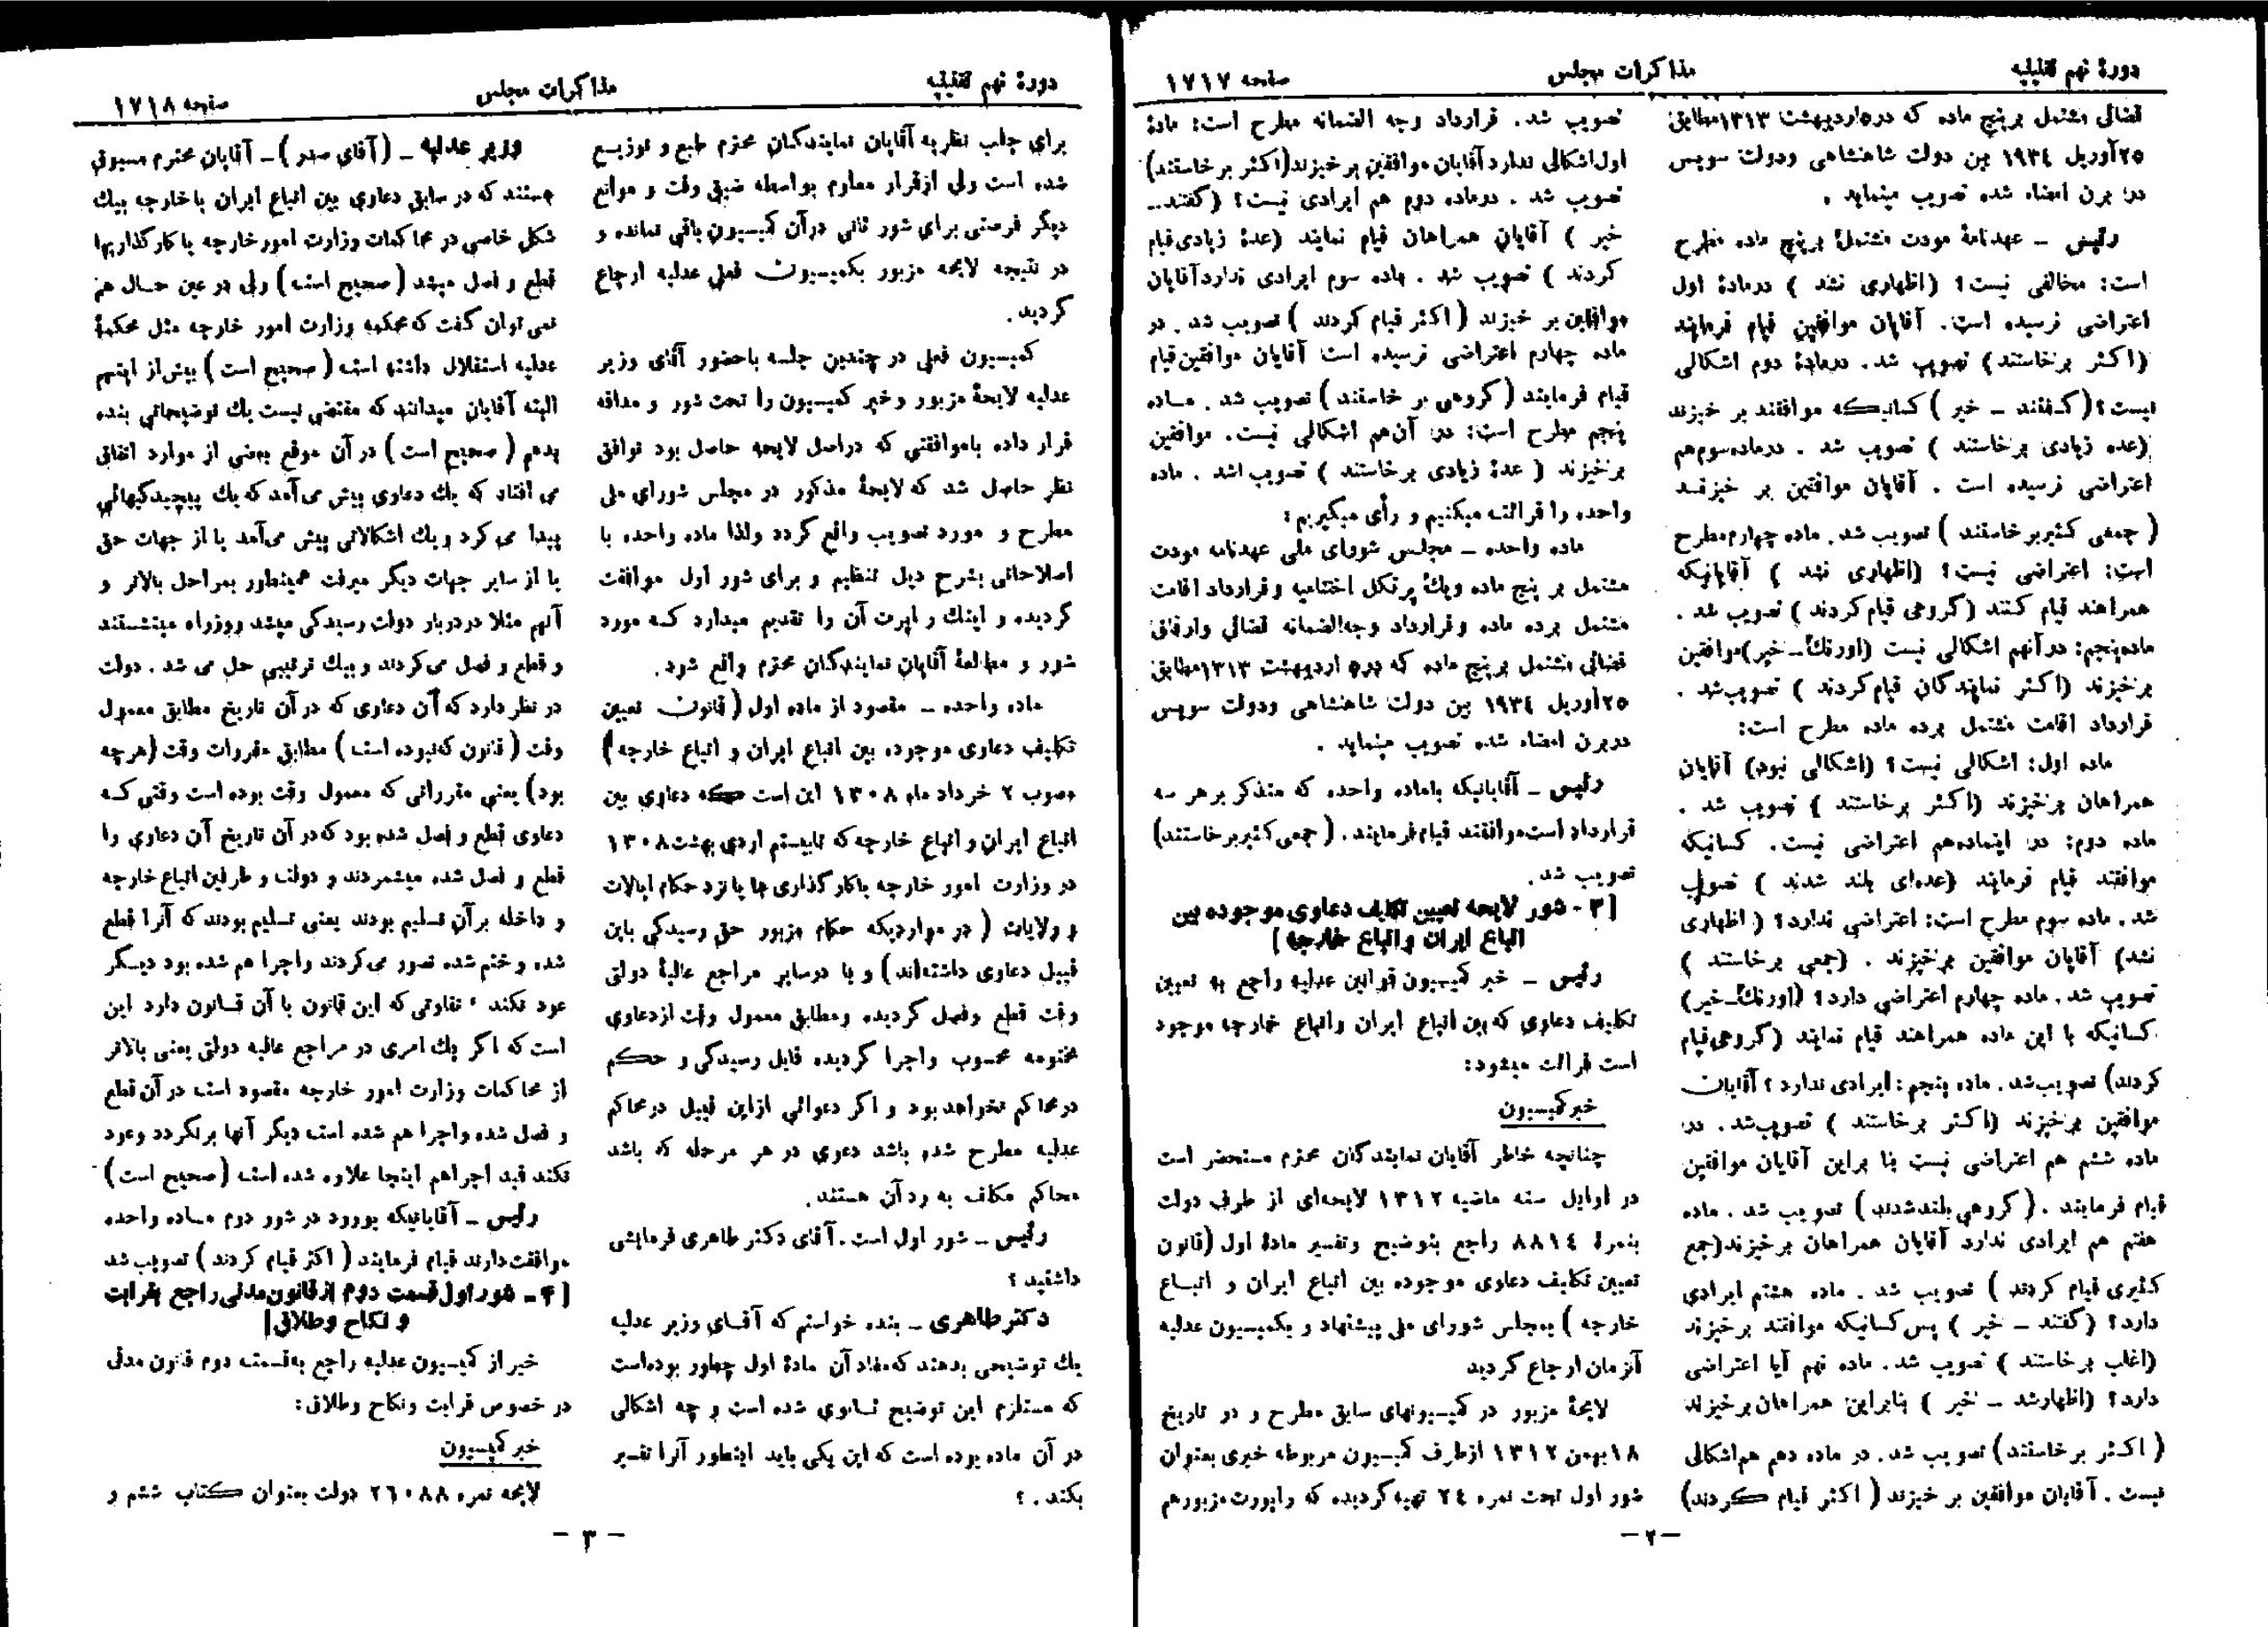 دورهٔ نهم تقنینیه
مذاکرات مجلس
صفحه ۱۷۱۷
قضائی مشتمل بر پنج ماده که در ۵ اردیبهشت ۱۳۱۳ مطابق
۲۵ آوریل ۱۹۳٤ بین دولت شاهنشاهی ودولت سویس
در برن امضاء شده تصویب مینماید .
رئیس ـ عهدنامهٔ مودت مشتمل بر پنج ماده مطرح
است: مخالفی نیست؟ (اظهاری نشد ) درمادهٔ اول
اعتراضی نرسیده است. آقایان موافقین قیام فرمایند
(اکثر برخاستند) تصویب شد. درمادهٔ دوم اشکالی
نیست؟ (گفتند ـ خیر ) کسانیکه موافقند بر خیزند
(عده زیادی برخاستند ) تصویب شد . درماده سوم هم
اعتراضی نرسیده است . آقایان موافقین بر خیزند
( جمعی کثیر بر خاستند ) تصویب شد. ماده چهارم مطرح
است: اعتراضی نیست؟ (اظهاری نشد ) آقایانیکه
همراهند قیام کنند (گروهی قیام کردند ) تصویب شد .
ماده پنجم: در آنهم اشکالی نیست (اورنگ ـ خیر) موافقین
برخیزند (اکثر نمایندگان قیام کردند ) تصویب شد .
قرارداد اقامت مشتمل برده ماده مطرح است:
ماده اول: اشکالی نیست؟ (اشکالی نبود) آقایان
همراهان برخیزند (اکثر برخاستند ) تصویب شد .
ماده دوم: در اینماده هم اعتراضی نیست. کسانیکه
موافقند قیام فرمایند (عده‌ای بلند شدند ) تصویب
شد . ماده سوم مطرح است: اعتراضی ندارد؟ ( اظهاری
نشد) آقایان موافقین برخیزند . (جمعی برخاستند )
تصویب شد. ماده چهارم اعتراضی دارد؟ (اورنگ ـ خیر)
کسانیکه با این ماده همراهند قیام نمایند (گروهی قیام
کردند) تصویب شد . ماده پنجم : ایرادی ندارد ؟ آقایان
موافقین برخیزند (اکثر برخاستند ) تصویب شد. در
ماده ششم هم اعتراضی نیست بنا براین آقایان موافقین
قیام فرمایند . (گروهی بلند شدند ) تصویب شد . ماده
هفتم هم ایرادی ندارد آقایان همراهان برخیزند (جمع
کثیری قیام کردند ) تصویب شد . ماده هشتم ایرادی
دارد؟ (گفتند ـ خیر ) پس کسانیکه موافقند برخیزند
(اغلب برخاستند ) تصویب شد. ماده نهم آیا اعتراضی
دارد؟ (اظهار شد ـ خیر ) بنابراین همراهان برخیزند
( اکثر برخاستند) تصویب شد. در ماده دهم هم اشکالی
نیست . آقایان موافقین بر خیزند ( اکثر قیام کردند)
تصویب شد. قرارداد وجه الضمانه مطرح است: مادهٔ
اول اشکالی ندارد آقایان موافقین بر خیزند (اکثر بر خاستند)
تصویب شد . درماده دوم هم ایرادی نیست؟ (گفتند ـ
خیر ) آقایان همراهان قیام نمایند (عدهٔ زیادی قیام
کردند ) تصویب شد . ماده سوم ایرادی ندارد آقایان
موافقین بر خیزند ( اکثر قیام کردند ) تصویب شد . در
ماده چهارم اعتراضی نرسیده است آقایان موافقین قیام
قیام فرمایند ( گروهی بر خاستند ) تصویب شد . ماده
پنجم مطرح است: در آن هم اشکالی نیست. موافقین
برخیزند ( عدهٔ زیادی برخاستند ) تصویب شد . ماده
واحده را قرائت میکنیم و رأی میگیریم:
ماده واحده ـ مجلس شورای ملی عهدنامه مودت
مشتمل بر پنج ماده ویك پرتکل اختتامیه وقرارداد اقامت
مشتمل برده ماده وقرارداد وجه‌الضمانه قضائی وارفاق
قضائی مشتمل بر پنج ماده که در ۵ اردیبهشت ۱۳۱۳ مطابق
۲۵ آوریل ۱۹۳٤ بین دولت شاهنشاهی ودولت سویس
در برن امضاء شده تصویب مینماید .
رئیس ـ آقایانیکه باماده واحده که متذکر بر هر سه
قرارداد است موافقند قیام فرمایند . (جمعی کثیر برخاستند)
تصویب شد.
[۳ ـ شور لایحه تعیین تکلیف دعاوی موجوده بین
اتباع ایران و اتباع خارجه]
رئیس ـ خبر کمیسیون قوانین عدلیه راجع به تعیین
تکلیف دعاوی که بین اتباع ایران واتباع خارجه موجود
است قرائت میشود:
خبر کمیسیون
چنانچه خاطر آقایان نمایندگان محترم مستحضر است
در اوایل سنه ماضیه ۱۳۱۲ لایحه‌ای از طرف دولت
بنمرهٔ ۸۸۱٤ راجع بتوضیح وتفسیر مادهٔ اول (قانون
تعیین تکلیف دعاوی موجوده بین اتباع ایران و اتباع
خارجه ) بمجلس شورای ملی پیشنهاد و بکمیسیون عدلیه
آنزمان ارجاع گردید
لایحهٔ مزبور در کمیسیونهای سابق مطرح و در تاریخ
۱۸ بهمن ۱۳۱۲ از طرف کمیسیون مربوطه خبری بعنوان
شور اول تحت نمره ۲٤ تهیه گردیده که راپورت مزبور هم
ـ ۲ ـ
دورهٔ نهم تقنینیه
مذاکرات مجلس
صفحه ۱۷۱۸
برای جلب نظریه آقایان نمایندگان محترم طبع و توزیع
شده است ولی از قرار معلوم بواسطه ضیق وقت و موانع
دیگر فرصتی برای شور ثانی در آن کمیسیون باقی نمانده و
در نتیجه لایحه مزبور بکمیسیون فعلی عدلیه ارجاع
گردید.
کمیسیون فعلی در چندین جلسه باحضور آقای وزیر
عدلیه لایحهٔ مزبور وخبر کمیسیون را تحت شور و مداقه
قرار داده باموافقتی که دراصل لایحه حاصل بود توافق
نظر حاصل شد که لایحهٔ مذکور در مجلس شورای ملی
مطرح و مورد تصویب واقع گردد ولذا ماده واحده با
اصلاحاتی بشرح ذیل تنظیم و برای شور اول موافقت
گردیده و اینك راپرت آن را تقدیم میدارد که مورد
شور و مطالعهٔ آقایان نمایندگان محترم واقع شود.
ماده واحده ـ مقصود از ماده اول ( قانون تعیین
تکلیف دعاوی موجوده بین اتباع ایران و اتباع خارجه )
مصوب ۲ خرداد ماه ۱۳۰۸ این است که دعاوی بین
اتباع ایران و اتباع خارجه که تا بیستم اردی بهشت ۱۳۰۸
در وزارت امور خارجه یا کارگذاری ها یا نزد حکام ایالات
و ولایات ( در مواردیکه حکام مزبور حق رسیدگی باین
قبیل دعاوی داشته‌اند) و یا در سایر مراجع عالیهٔ دولتی
وقت قطع وفصل گردیده ومطابق معمول وقت از دعاوی
مختومه محسوب واجرا گردیده قابل رسیدگی و حکم
در محاکم نخواهد بود و اگر دعوائی ازاین قبیل درمحاکم
عدلیه مطرح شده باشد دعوی در هر مرحله که باشد
محاکم مکلف به رد آن هستند.
رئیس ـ شور اول است . آقای دکتر طاهری فرمایشی
داشتید ؟
دکتر طاهری ـ بنده خواستم که آقای وزیر عدلیه
یك توضیحی بدهند که مفاد آن مادهٔ اول چطور بوده‌است
که مستلزم این توضیح ثانوی شده است و چه اشکالی
در آن ماده بوده است که این یکی باید اینطور آنرا تفسیر
بکند . ؟
وزیر عدلیه ـ (آقای صدر) ـ آقایان محترم مسبوق
هستند که در سابق دعاوی بین اتباع ایران باخارجه بیك
شکل خاصی در محاکمات وزارت امور خارجه یا کارگذاریها
قطع و فصل میشد ( صحیح است ) ولی در عین حال هم
نمی توان گفت که محکمه وزارت امور خارجه مثل محکمهٔ
عدلیه استقلال داشته است ( صحیح است ) بیش از اینهم
البته آقایان میدانند که مقتضی نیست یك توضیحاتی بنده
بدهم ( صحیح است ) در آن موقع بعضی از موارد اتفاق
می افتاد که یك دعاوی پیش می آمد که یك پیچیدگیهائی
پیدا می کرد و یك اشکالاتی پیش می‌آمد یا از جهات حق
یا از سایر جهات دیگر میرفت همینطور بمراحل بالاتر و
آنهم مثلا در دربار دولت رسیدگی میشد ووزراء مینشستند
و قطع و فصل می‌کردند و بیك ترتیبی حل می شد . دولت
در نظر دارد که آن دعاوی که در آن تاریخ مطابق معمول
وقت ( قانون که نبوده است ) مطابق مقررات وقت (هرچه
بود) یعنی مقرراتی که معمول وقت بوده است وقتی که
دعاوی قطع و فصل شده بود که در آن تاریخ آن دعاوی را
قطع و فصل شده میشمردند و دولت و طرفین اتباع خارجه
و داخله بر آن تسلیم بودند یعنی تسلیم بودند که آنرا قطع
شده وختم شده تصور می‌کردند واجرا هم شده بود دیگر
عود نکند ، تفاوتی که این قانون با آن قانون دارد این
است که اگر یك امری در مراجع عالیه دولتی یعنی بالاتر
از محاکمات وزارت امور خارجه مقصود است در آن قطع
و فصل شده واجرا هم شده است دیگر آنها برنگردد وعود
نکند قید اجراهم اینجا علاوه شده است (صحیح است)
رئیس ـ آقایانیکه بورود در شور دوم ماده واحده
موافقت دارند قیام فرمایند ( اکثر قیام کردند ) تصویب شد
[ ۴ ـ شور اول قسمت دوم از قانون مدنی راجع بقرابت
و نکاح وطلاق]
خبر از کمیسیون عدلیه راجع به قسمت دوم قانون مدنی
در خصوص قرابت ونکاح وطلاق:
خبر کمیسیون
لایحه نمره ۲٦۰۸۸ دولت بعنوان کتاب ششم و
ـ ۳ ـ